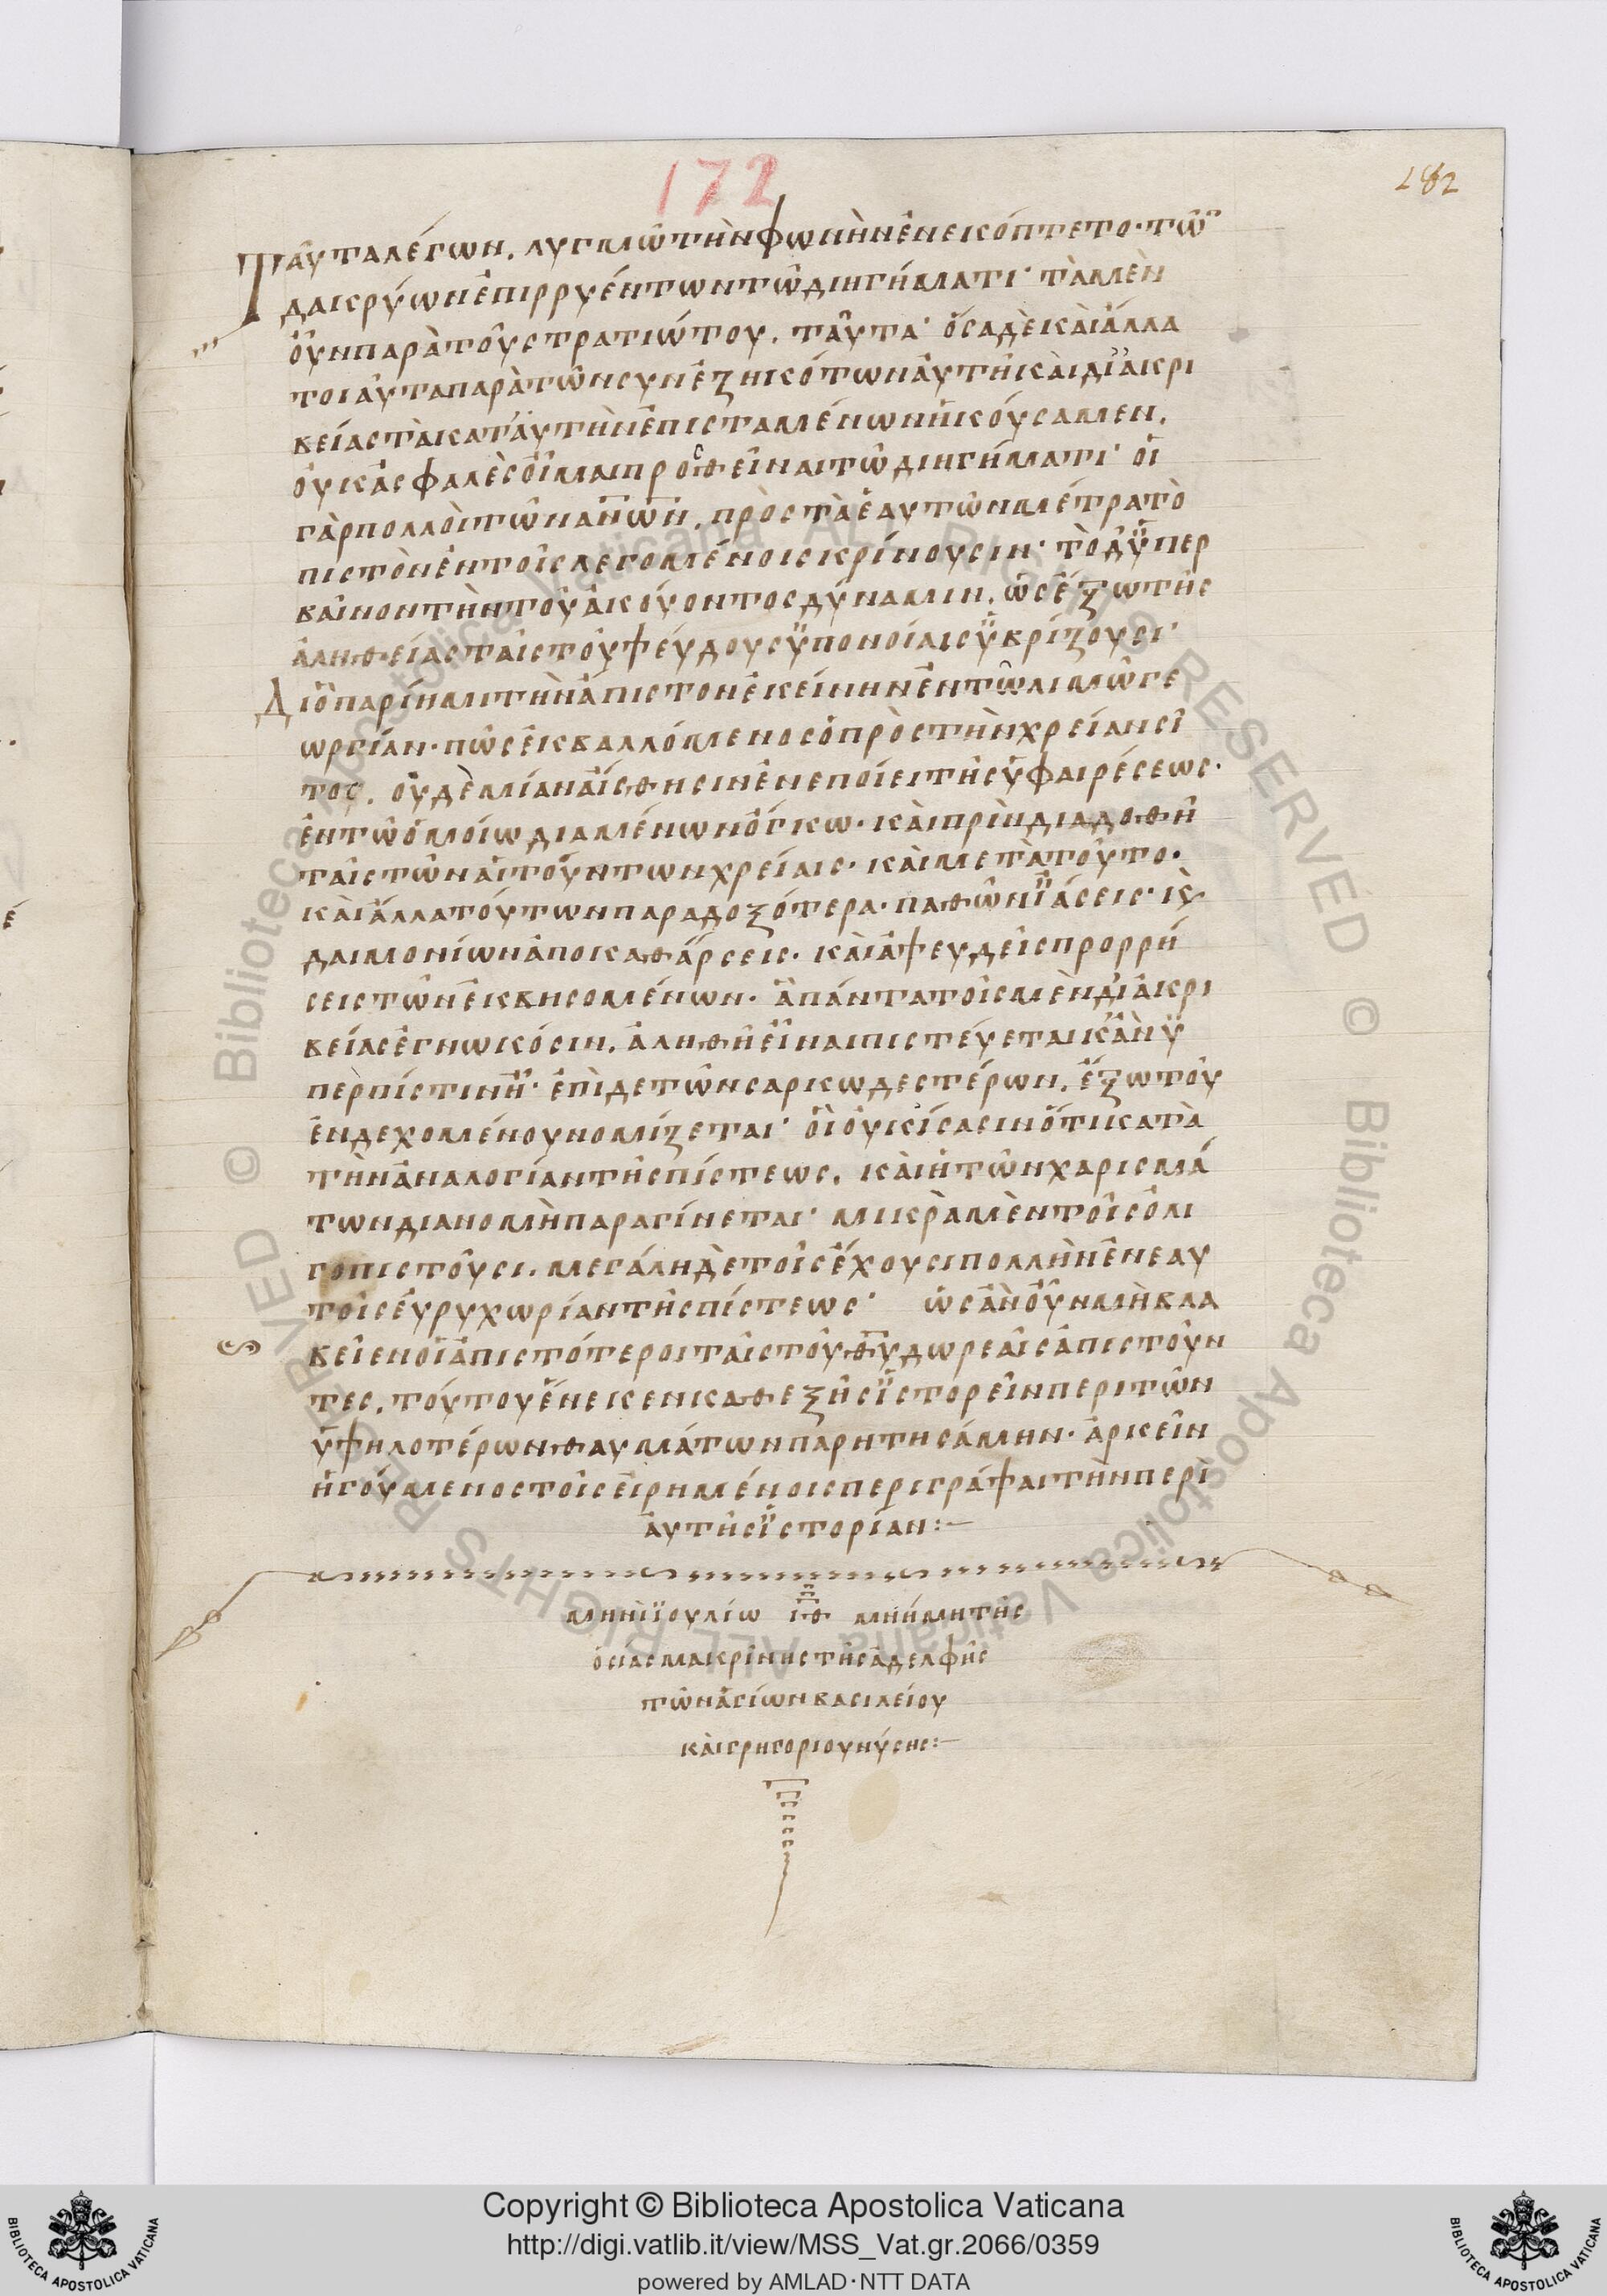 172
182
Ταῦτα λέγων, λυγμῶ τὴν φωνὴν ἐνεκόπτετο· τῶν
δακρύων ἐπιρρυέντων τῶ διηγήματι· τὰ μὲν
οὖν παρὰ τοῦ στρατιώτου, ταῦτα· ὅσα δὲ καὶ ἄλλα
τοιαῦτα παρὰ τῶν συνεζηκότων αὐτῆ καὶ δι' ἀκρι
βείας τὰ κατ' αὐτὴν ἐπισταμένων ἠκούσαμεν,
οὐκ ἀσφαλὲς οἶμαι προσθεῖναι τῶ διηγήματι· οἱ
γὰρ πολλοὶ τῶν ἀνων, πρὸς τὰ ἑαυτῶν μέτρα τὸ
πιστὸν ἐν τοῖς λεγομένοις κρίνουσιν· τὸ δ' ὑπερ
βαῖνον τὴν τοῦ ἀκούοντος δύναμιν, ὡς ἔξω τῆς
ἀληθείας ταῖς τοῦ ψεύδους ὑπονοίαις ὑβρίζουσι·
Διὸ παρίημι τὴν ἄπιστον ἐκείνην ἐν τῶ λιμῶ γε
ωργίαν· πῶς ἐκβαλλόμενος ὁ πρὸς τὴν χρείαν σῖ
τος, οὐδὲ μίαν αἴσθησιν ἐνεποίει τῆς ὑφαιρέσεως·
ἐν τῶ ὁμοίω διαμένων ὄγκω· καὶ πρὶν διαδοθῆ
ταῖς τῶν αἰτούντων χρείαις· καὶ μετὰ τοῦτο·
καὶ ἄλλα τούτων παραδοξότερα· παθῶν ἰάσεις· κὲ
δαιμονίων ἀποκαθάρσεις· καὶ ἀψευδεῖς προρρή
σεις τῶν ἐκβησομένων· ἃ πάντα τοῖς μὲν δι' ἀκρι
βείας ἐγνωκόσιν, ἀληθῆ εἶναι πιστεύεται κἂν ὑ
πὲρ πίστιν ἦ· ἐπὶ δε τῶν σαρκωδεστέρων, ἔξω τοῦ
ἐνδεχομένου νομίζεται· οἳ οὐκ ἴσασιν ὅτι κατὰ
τὴν ἀναλογίαν τῆς πίστεως, καὶ ἡ τῶν χαρισμά
των διανομὴ παραγίνεται· μικρὰ μὲν τοῖς ὀλι
γοπιστοῦσι, μεγάλη δὲ τοῖς ἔχουσι πολλὴν ἐν ἑαυ
τοῖς εὐρυχωρίαν τῆς πίστεως· ὡς ἂν οὖν μὴ βλα
βεῖεν οἱ ἀπιστότεροι ταῖς τοῦ θυ δωρεαῖς ἀπιστοῦν
τες, τούτου ἕνεκεν καθεξῆς ἱστορεῖν περι τῶν
ὑψηλοτέρων θαυμάτων παρητησάμην· ἀρκεῖν
ἡγούμενος τοῖς εἰρημένοις περιγράψαι τὴν περὶ
αὐτῆς ἱστορίαν:—
μηνὶ ϊουλίω ιθ μνήμη τῆς
ὁσίας μακρίνης τῆς ἀδελφῆς
τῶν ἁγίων βασιλείου
καὶ γρηγοριου νύσης:—
Copyright © Biblioteca Apostolica Vaticana
http://digi.vatlib.it/view/MSS_Vat.gr.2066/0359
powered by AMLAD·NTT DATA
BIBLIOTECA APOSTOLICA VATICANA
BIBLIOTECA APOSTOLICA VATICANA
© Biblioteca Apostolica Vaticana ALL RIGHTS RESERVED © Biblioteca Apostolica Vaticana ALL RIGHTS RESERVED